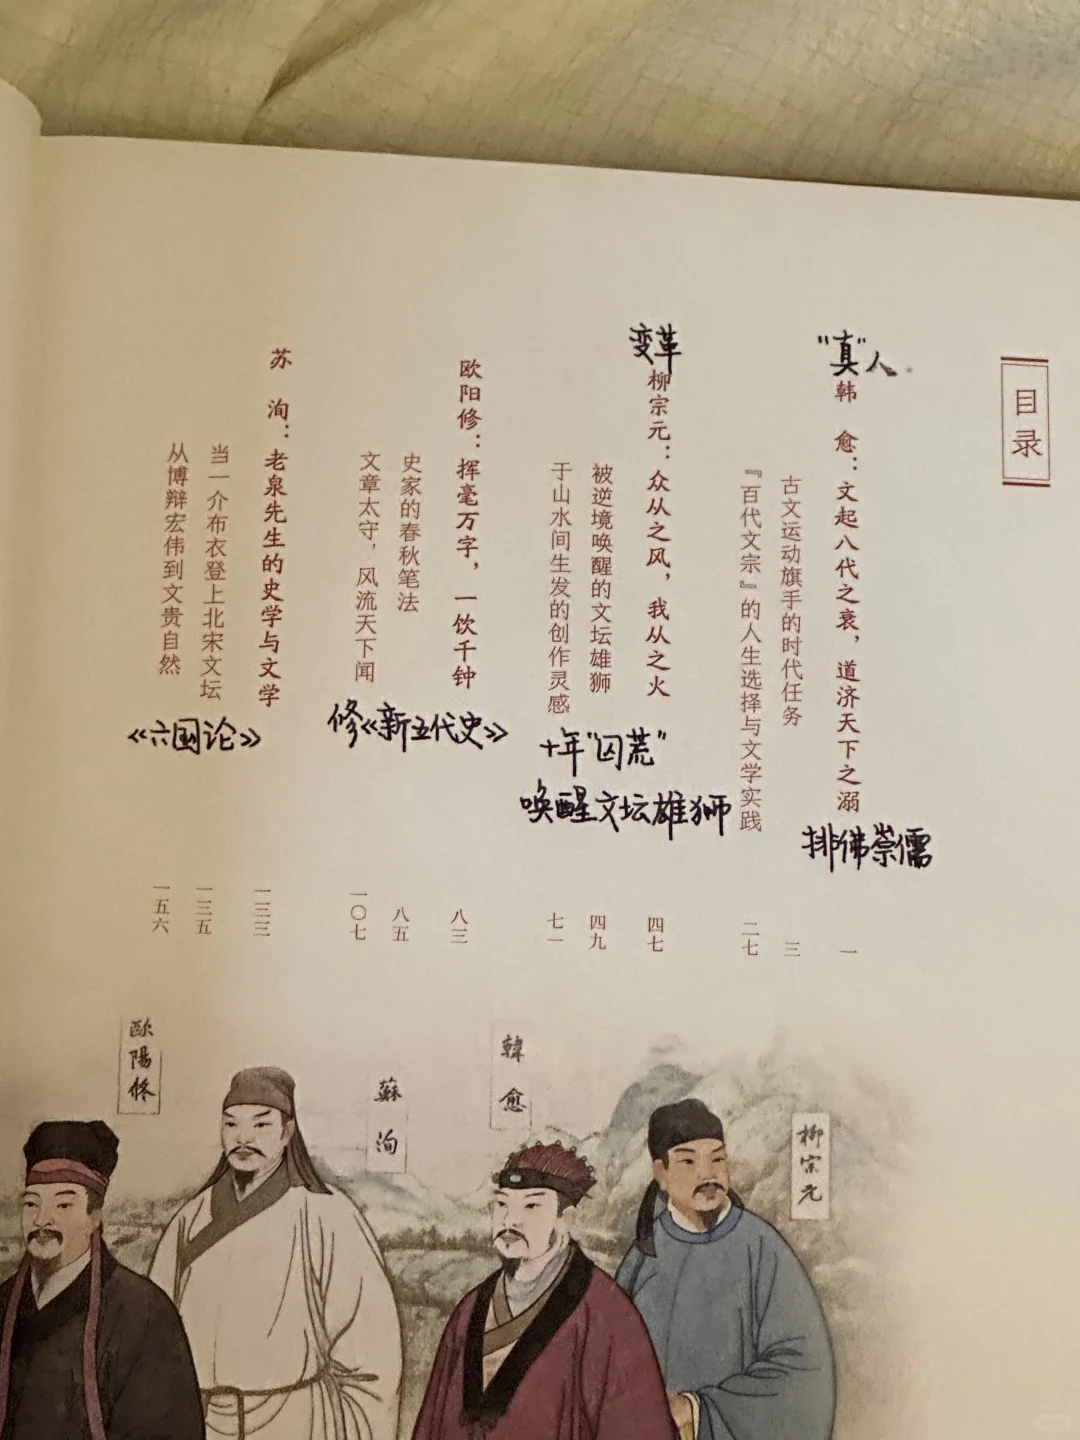 目录
“真”人
韩 愈：文起八代之衰，道济天下之溺
排佛崇儒
一
古文运动旗手的时代任务
三
『百代文宗』的人生选择与文学实践
二七
变革
柳宗元：众从之风，我从之火
四七
被逆境唤醒的文坛雄狮
四九
于山水间生发的创作灵感
七一
十年“囚荒”
唤醒文坛雄狮
欧阳修：挥毫万字，一饮千钟
八三
史家的春秋笔法
八五
文章太守，风流天下闻
一〇七
修《新五代史》
苏 洵：老泉先生的史学与文学
一三三
当一介布衣登上北宋文坛
一三五
从博辩宏伟到文贵自然
一五六
《六国论》
柳宗元
韓愈
蘇洵
歐陽修